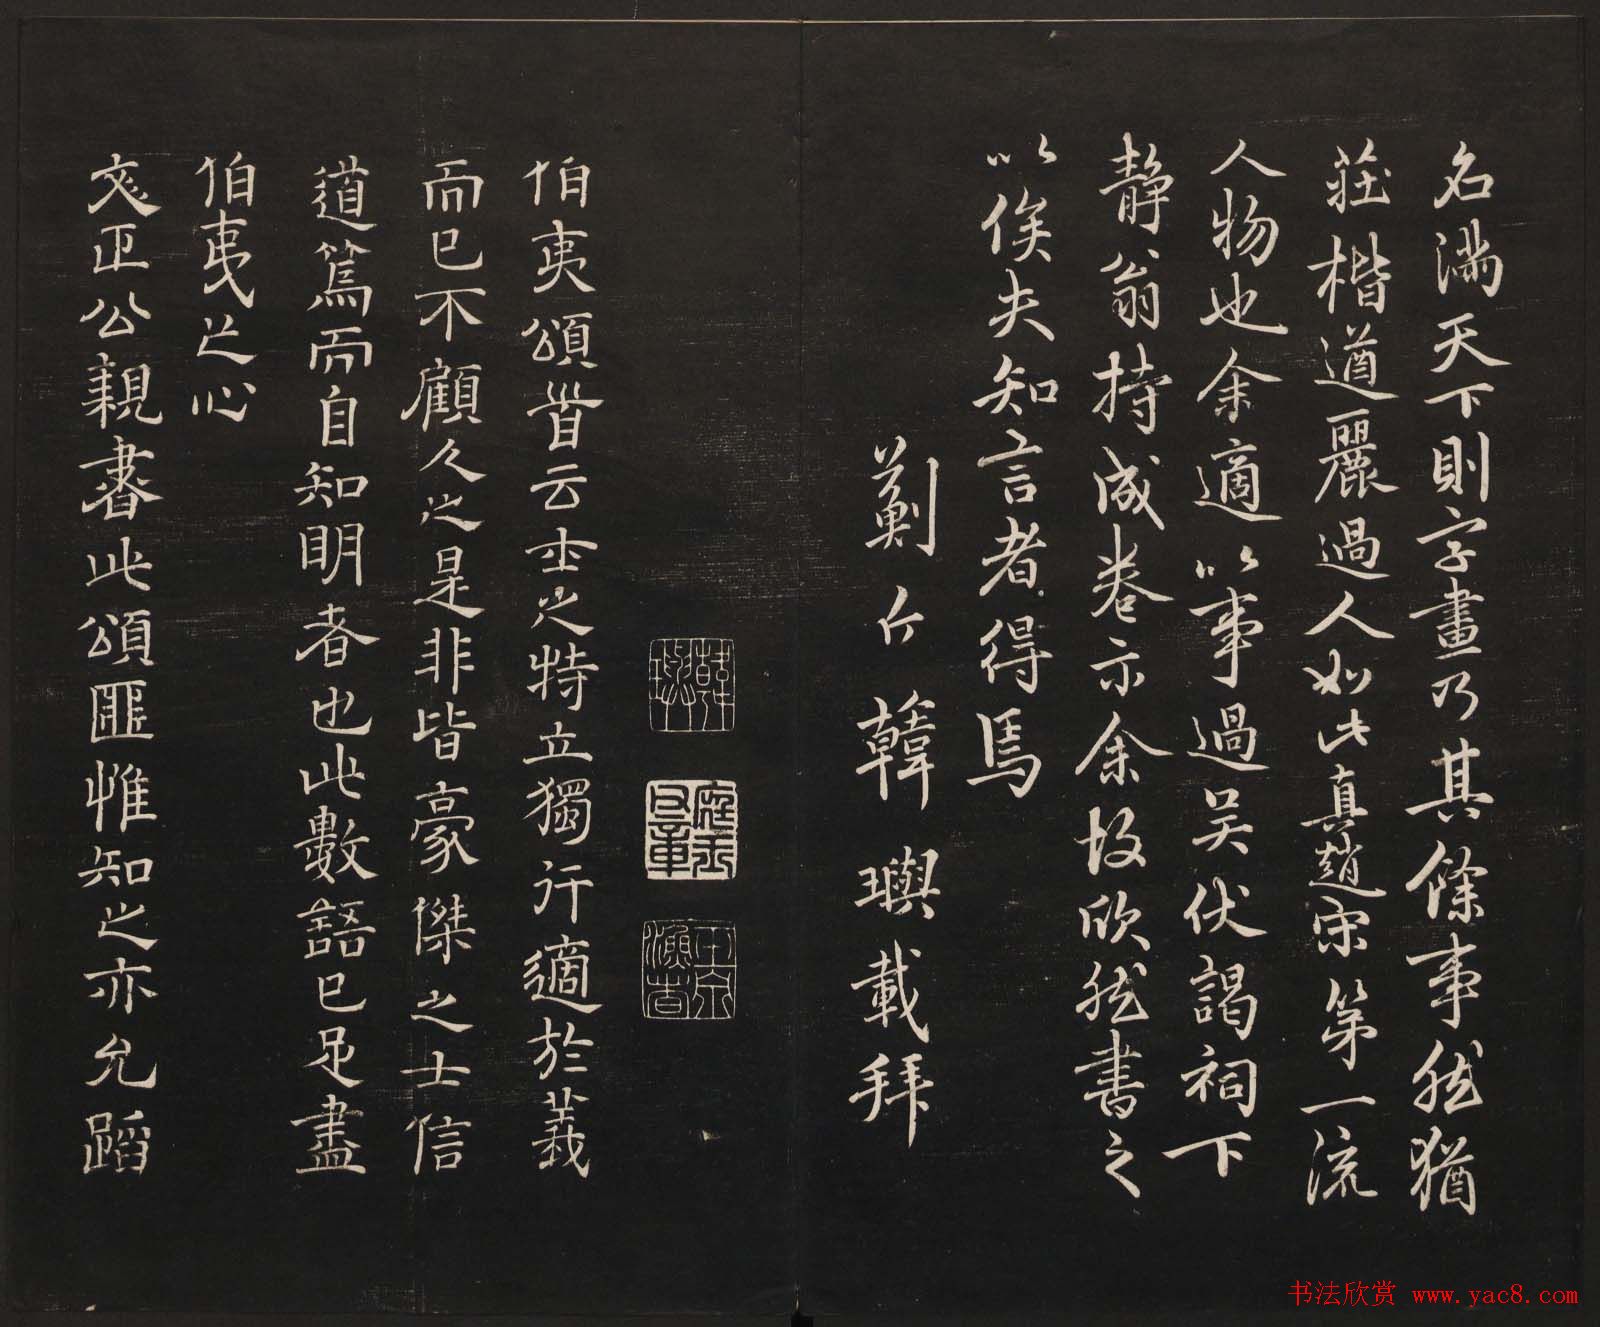 名滿天下則字畫乃其餘事然猶
莊楷遒麗過人如此真趙宋第一流
人物也余適以事過吴伏謁祠下
静翁持成卷示余故欣然書之
以俟夫知言者得焉
薊丘韓璵載拜
伯夷頌首云士之特立獨行適於義
而已不顧人之是非皆豪傑之士信
道篤而自知明者也此數語已足盡
伯夷之心
文正公親書此頌匪惟知之亦允蹈
韓璵
廷玉印章
书法欣赏 www.yac8.com